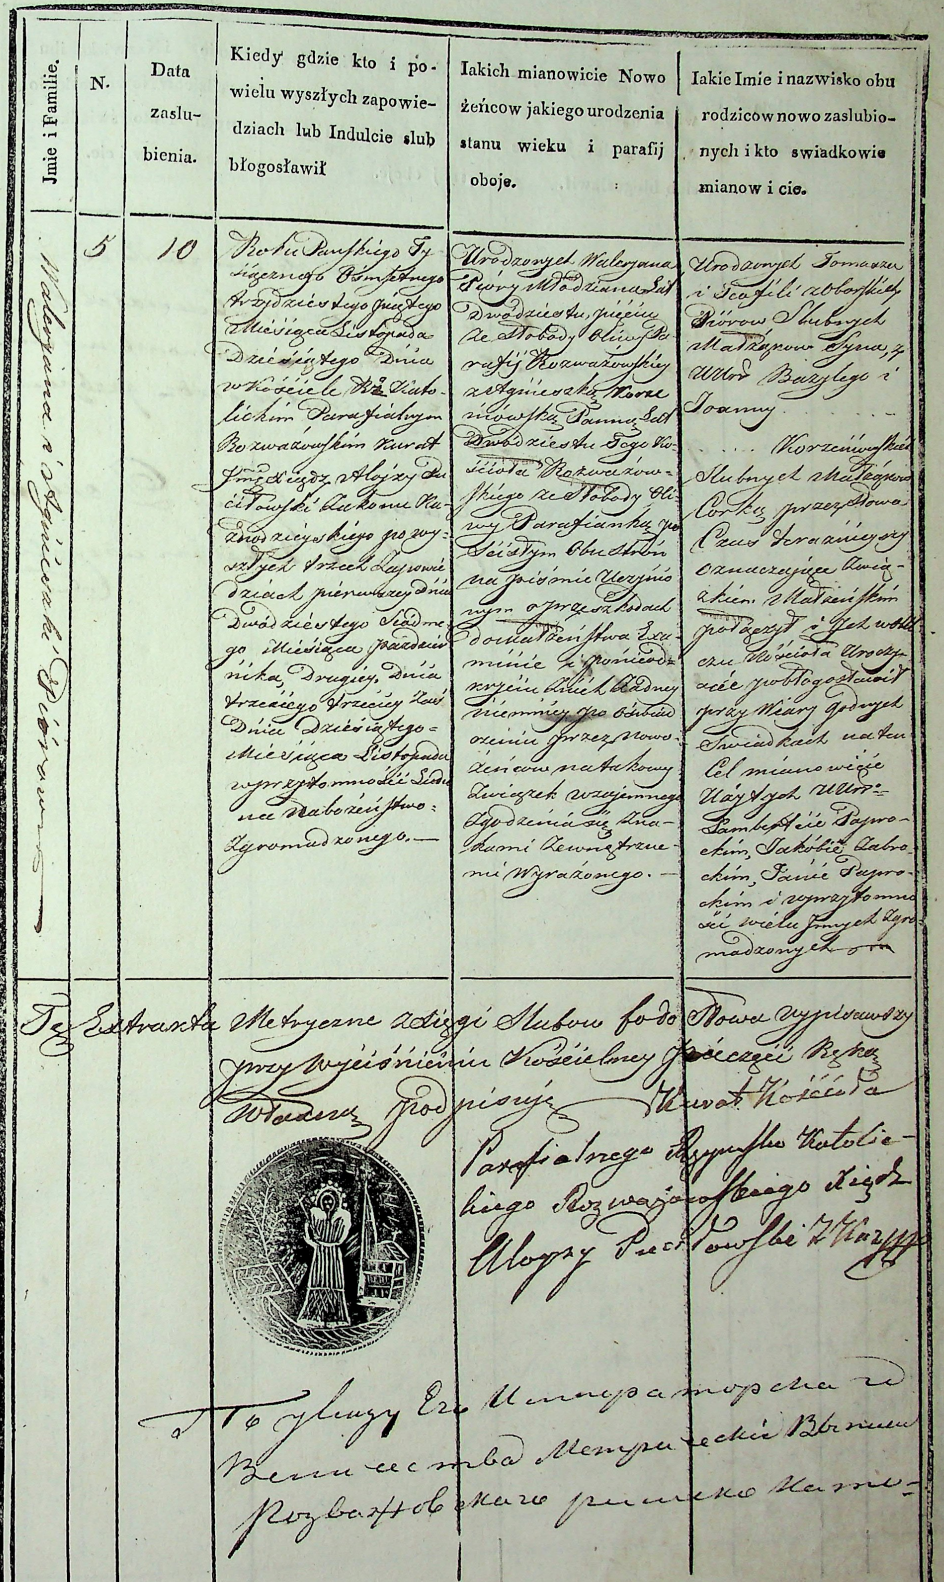 Jmie i Familie.
N.
Data
zaslu-
bienia.
Kiedy gdzie kto i po-
wielu wyszłych zapowie-
dziach lub Indulcie slub
błogosławił
Iakich mianowicie Nowo
żeńcow jakiego urodzenia
stanu wieku i parafij
oboje.
Iakie Imie i nazwisko obu
rodziców nowo zaslubio-
nych i kto swiadkowie
mianow i cie.
Waleryana i Agnieszki Piórowie
5
10
Roku Pańskiego Ty-
siącznego Osmsetnego
trzydziestego piątego
Miesiąca Listopada
Dziesiątego Dnia
w Kościele Rz Kato-
lickim Parafialnym
Rozwazówskim Kurat
Jmć Xiądz Aloizy Pu-
ciłowski Zakonu Ka-
znodzieyskiego po wy-
szłych trzech Zapowie
dziach pierwszey Dnia
Dwódziestego Siódme-
go Miesiąca Paździer
nika, Drugiey, Dnia
trzeciego trzeciey Zaś
Dnia Dziesiątego
Miesiąca Listopada
w przytomność Ludu
na Nabożeństwo
Zgromadzonego.
Urodzonych Waleryana
Pióry Młodziana Lat
Dwódziestu pięciu
ze Słobody Oliwy Pa-
rafij Rozwazowskiey
z Agnieszką Korze
niowską Panną Lat
Dwódziestu Tego Ko-
ścioła Rozwazow-
skiego ze Słobody Oli-
wy Parafianką, po
Ścisłym Obustron
na piśmie Uczynio
nym o przeszkodach
do małżeństwa Exa-
minie i ponieod-
kryciu żadney
niemniey po Oświad
czeniu przez Nowo-
żeńcow na takowy
Związek wzajemnego
Zgodzenia się Zna-
kami Zewnętrzne-
mi Wyrażonego.
Urodzonych Tomasza
i Teofili z Oborskich
Piórow Slubnych
Małżąkow Syna, z
Urod Bazylego i
Joanny
Korzeniowskich
Slubnych Małżąkow
Corką, przez Słowa
Czas teraźnieyszy
oznaczające Zwią-
zkiem Małżeńskim
połączył i Jch w obli
czu Kościoła Uroczy-
ście pobłogosławił
przy Wiary godnych
Swiadkach na ten
Cel mianowicie
Użytych
Lambercie Papro-
ckim, Jakóbie Zabro-
ckim, Janie Papro-
ckim i w przytomno
ści wielu Jnnych Zgro-
madzonych
Tę Extrakta Metryczne z Xięgi Slubow Co do Słowa wypisawszy
przy wyciśnieniu Kościelney Pieczęci Ręką
Własną podpisuję Kurat Kościoła
Parafialnego Rzymsko Katolic-
kiego Rozwazowskiego Xiądz
Aloyzy Puciłowski Z Kaz
По указу Его Императорскаго
Величества